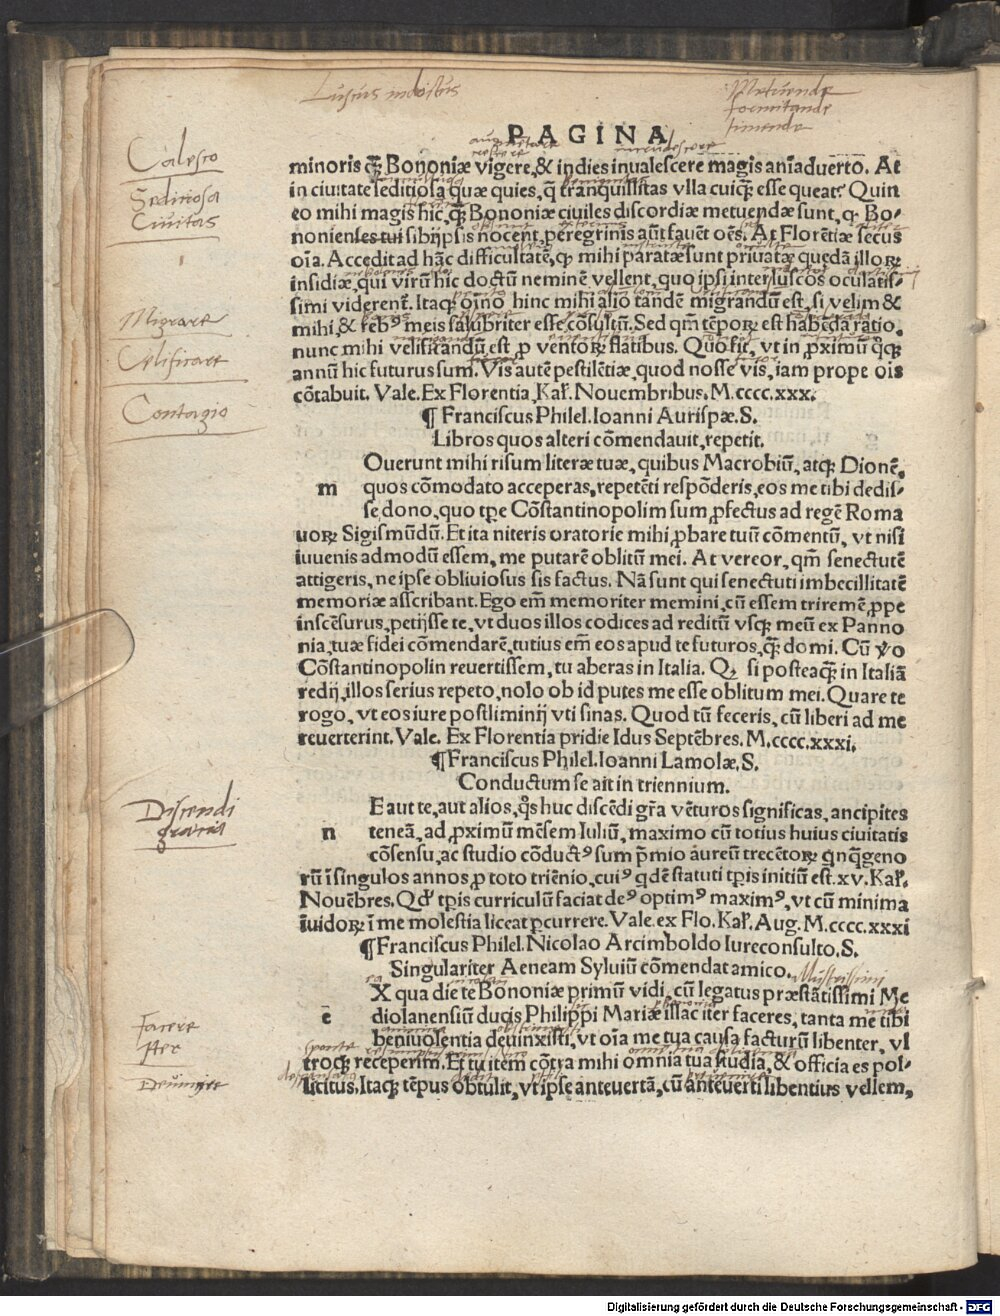 Luscus
Metuende
formitande
timende
PAGINA
Calesco
Sediciosa
Ciuitas
Migrare
Velificare
Contagio
minoris q̃ꝫ Bononiæ vigere,& indies inualescere magis aĩaduerto. At
in ciuitate seditiosa quæ quies, q̃ tranquillitas vlla cuiq̃ꝫ esse queat? Quin
eo mihi magis hic,q̃ꝫ Bononiæ ciuiles discordiæ metuendæ sunt, ꝙ Bo-
nonienses tui sibijpsis nocent, peregrinis aũt fauẽt oẽs. At Florẽtiæ secus
oĩa. Accedit ad hãc difficultatẽ,ꝙ mihi paratæ sunt priuatæ quedã illoꝝ
insidiæ,qui virũ hic doctũ neminẽ vellent, quo ipsi inter luscos oculatis-
simi viderent̃. Itaqꝫ oĩno hinc mihi alio tandẽ migrandũ est, si velim &
mihi,& rebꝰ meis salubriter esse cõsultũ. Sed qm̃ tẽpoꝝ est habẽda ratio,
nunc mihi velificandũ est ꝓ ventoꝝ flatibus. Quo fit, vt in ꝓximũ q̊qꝫ
annũ hic futurus sum. Vis autẽ pestilẽtiæ, quod nosse vis, iam prope oĩs
cõtabuit. Vale. Ex Florentia, Kal̃. Nouembribus. M.cccc.xxx.
¶ Franciscus Philel. Ioanni Aurispæ. S.
Libros quos alteri cõmendauit, repetit.
Ouerunt mihi risum literæ tuæ, quibus Macrobiũ, atqꝫ Dionẽ,
m quos cõmodato acceperas, repetẽti respõderis, eos me tibi dedis-
se dono, quo tꝑe Cõstantinopolim sum ꝓfectus ad regẽ Roma
uoꝝ Sigismũdũ. Et ita niteris oratorie mihi ꝓbare tuũ cõmentũ, vt nisi
iuuenis admodũ essem, me putarẽ oblitũ mei. At vereor, qm̃ senectutẽ
attigeris, ne ipse obliuiosus sis factus. Nã sunt qui senectuti imbecillitatẽ
memoriæ asscribant. Ego em̃ memoriter memini, cũ essem triremẽ ꝓpe
inscẽsurus, petijsse te, vt duos illos codices ad reditũ vsqꝫ meũ ex Panno
nia, tuæ fidei cõmendarẽ, tutius em̃ eos apud te futuros, q̃ꝫ domi. Cũ ꝟo
Cõstantinopolin reuertissem, tu aberas in Italia. Qꝫ si posteaq̃ꝫ in Italiã
redij, illos serius repeto, nolo ob id putes me esse oblitum mei. Quare te
rogo, vt eos iure postliminij vti sinas. Quod tũ feceris, cũ liberi ad me
reuerterint. Vale. Ex Florentia pridie Idus Septẽbres. M.cccc.xxxi.
¶Franciscus Philel. Ioanni Lamolæ. S.
Conductum se ait in triennium.
Discendi
gratia
E aut te, aut alios, q̊s huc discẽdi gr̃a vẽturos significas, ancipites
n teneã, ad ꝓximũ mẽsem Iuliũ, maximo cũ totius huius ciuitatis
cõsensu, ac studio cõductꝰ sum p̃mio aureũ trecẽtoꝝ qnq̃geno
rũ ĩ singulos annos ꝓ toto triẽnio, cuiꝰ qdẽ statuti tꝑis initiũ est.xv.Kal̃.
Nouẽbres. Qd̛ tꝑis curriculũ faciat deꝰ optimꝰ maximꝰ, vt cũ minima
ĩuidoꝝ ĩ me molestia liceat ꝑcurrere. Vale. ex Flo. Kal̃. Aug. M.cccc.xxxi
¶Franciscus Philel. Nicolao Arcimboldo Iureconsulto. S.
Singulariter Aeneam Syluiũ cõmendat amico.
Illustrissimi
X qua die te Bononiæ primũ vidi, cũ legatus præstãtissimi Me
ẽ diolanensiũ ducis Philippi Mariæ illac iter faceres, tanta me tibi
beniuolentia deuinxisti, vt oĩa me tua causa facturũ libenter, vl
troqꝫ receperim. Et tu item cõtra mihi omnia tua studia, & officia es pol-
licitus. Itaqꝫ tẽpus obtulit, vt ipse anteuertã, cũ anteuerti libentius vellem,
Facere
Iter
Deuincire
Digitalisierung gefördert durch die Deutsche Forschungsgemeinschaft - DFG